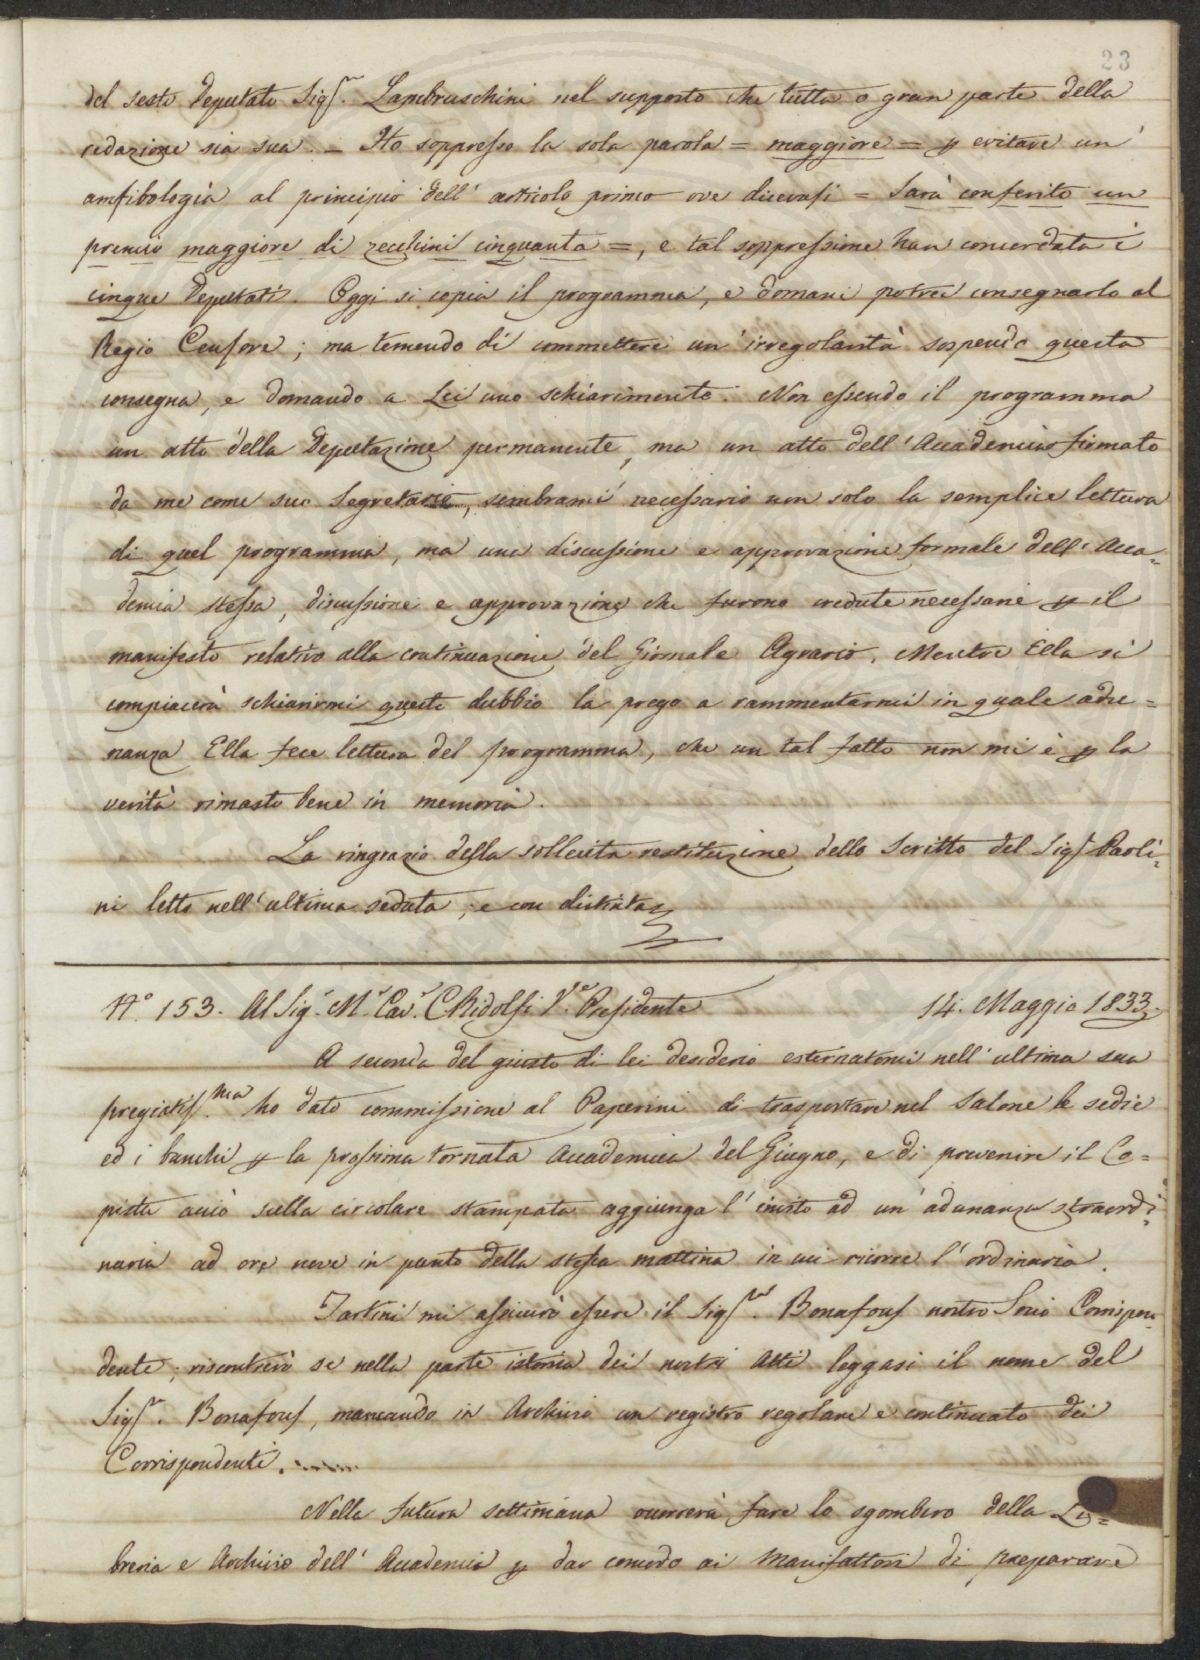 23
del sesto Deputato Sigr. Lambruschini nel supposto che tutta o gran parte della
redazione sia sua. = Ho soppresso la sola parola = maggiore = p evitare un'
amfibologia al principio dell'articolo primo ove dicevasi = Sarà conferito un
premio maggiore di zecchini cinquanta =, e tal soppressione han concordata i
cinque Deputati. Oggi si copia il programma, e domani potrei consegnarlo al
Regio Censore; ma temendo di commettere un'irregolarità sospendo questa
consegna, e domando a Lei uno schiarimento. Non essendo il programma
un atto della Deputazione permanente, ma un atto dell'Accademia firmato
da me come suo Segretario, sembrami necessario non solo la semplice lettura
di quel programma, ma una discussione e approvazione formale dell'Acca=
demia stessa, discussione e approvazione che furono credute necessarie p il
manifesto relativo alla continuazione del Giornale Agrario. Mentre Ella si
compiacerà schiarirmi questo dubbio la prego a rammentarmi in quale adu=
nanza Ella fece lettura del programma, che un tal fatto non mi è p la
verità rimasto bene in memoria.
La ringrazio della sollecita restituzione dello Scritto del Sigr Paoli=
ni letto nell'ultima seduta; e con distinta
N.o 153. Al Sigr. Mr. Cavr. C. Ridolfi V.e Presidente 14. Maggio 1833.
A seconda del giusto di lei desiderio esternatomi nell'ultima sua
pregiatis.ma ho dato commissione al Paperini di trasportare nel Salone le sedie
ed i banchi p la prossima tornata Accademica del Giugno, e di prevenire il Co=
pista acciò sulla circolare stampata aggiunga l'invito ad un'adunanza straordi=
naria ad ore nove in punto della stessa mattina in cui ricorre l'ordinaria.
Tartini mi assicurò essere il Sigr. Bonafous nostro Socio Corrispon=
dente; riscontrerò se nella parte istorica dei nostri Atti leggasi il nome del
Sigr. Bonafous, mancando in Archivio un registro regolare e continuato dei
Corrispondenti.
Nella futura settimana occorrerà fare lo sgombero della Li=
breria e Archivio dell'Accademia p dar comodo ai Manifattori di preparare